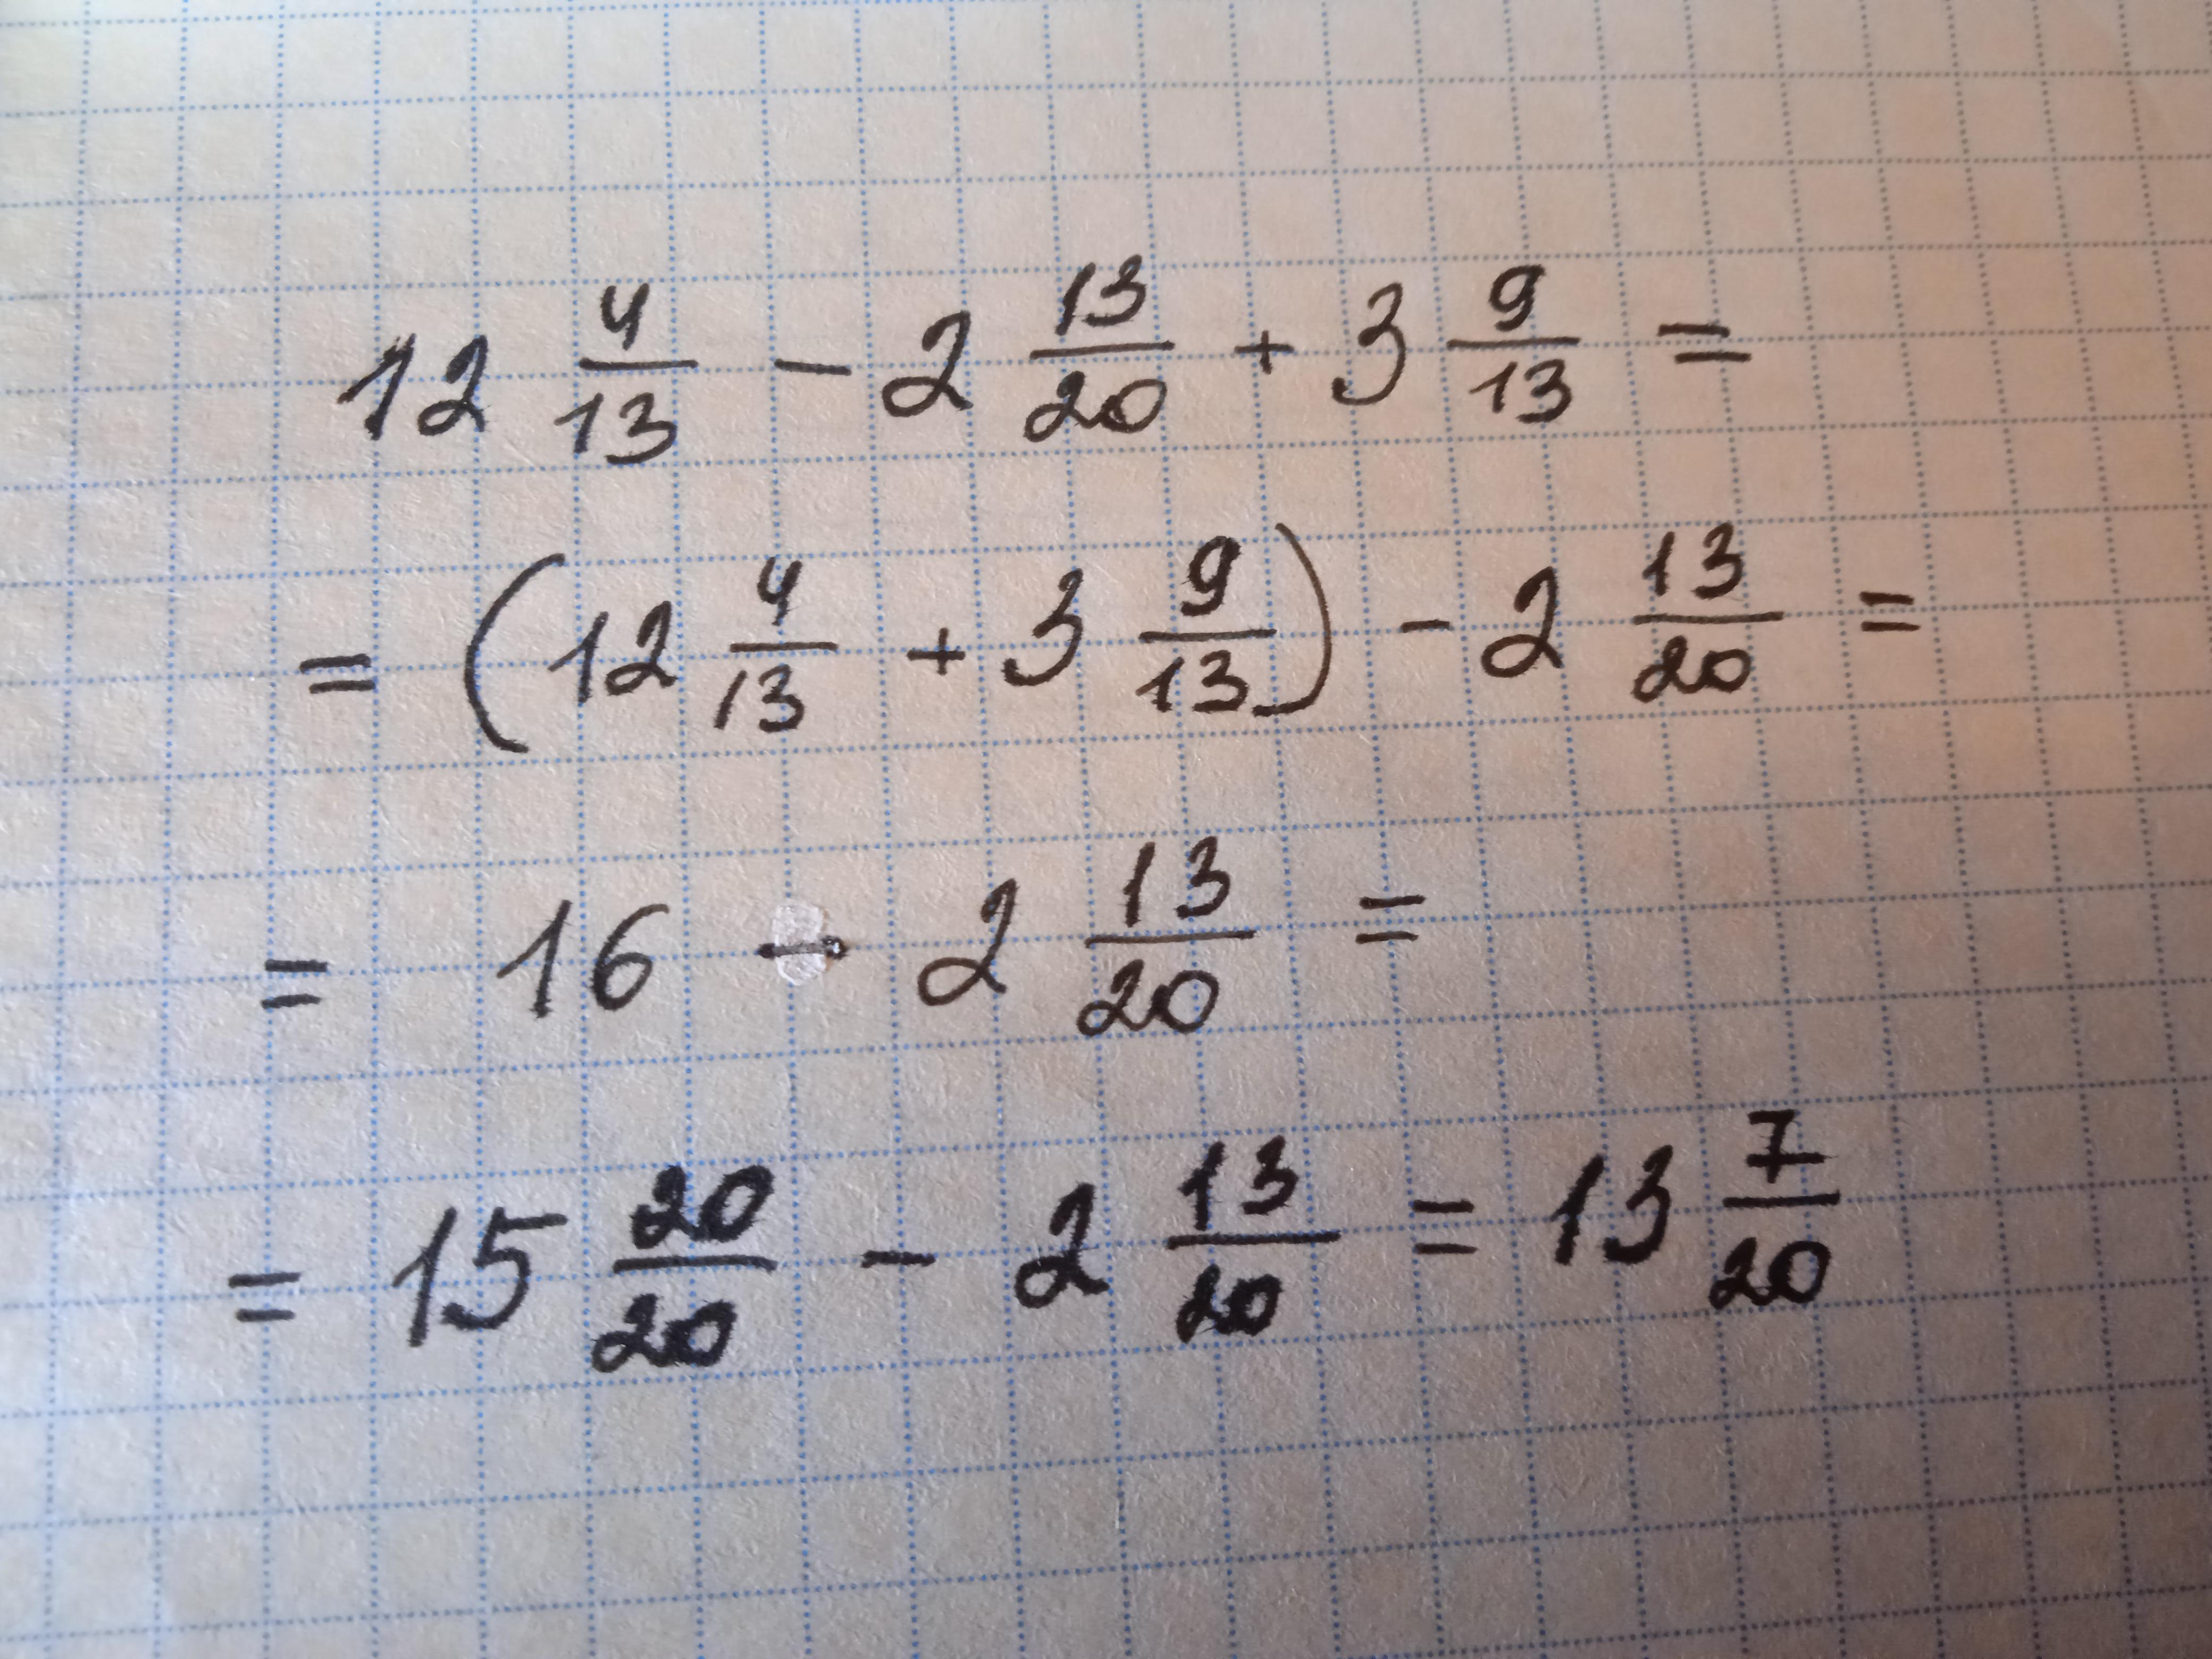 12 4/13 - 2 13/20 + 3 9/13 =
= (12 4/13 + 3 9/13) - 2 13/20 =
= 16 - 2 13/20 =
= 15 20/20 - 2 13/20 = 13 7/20